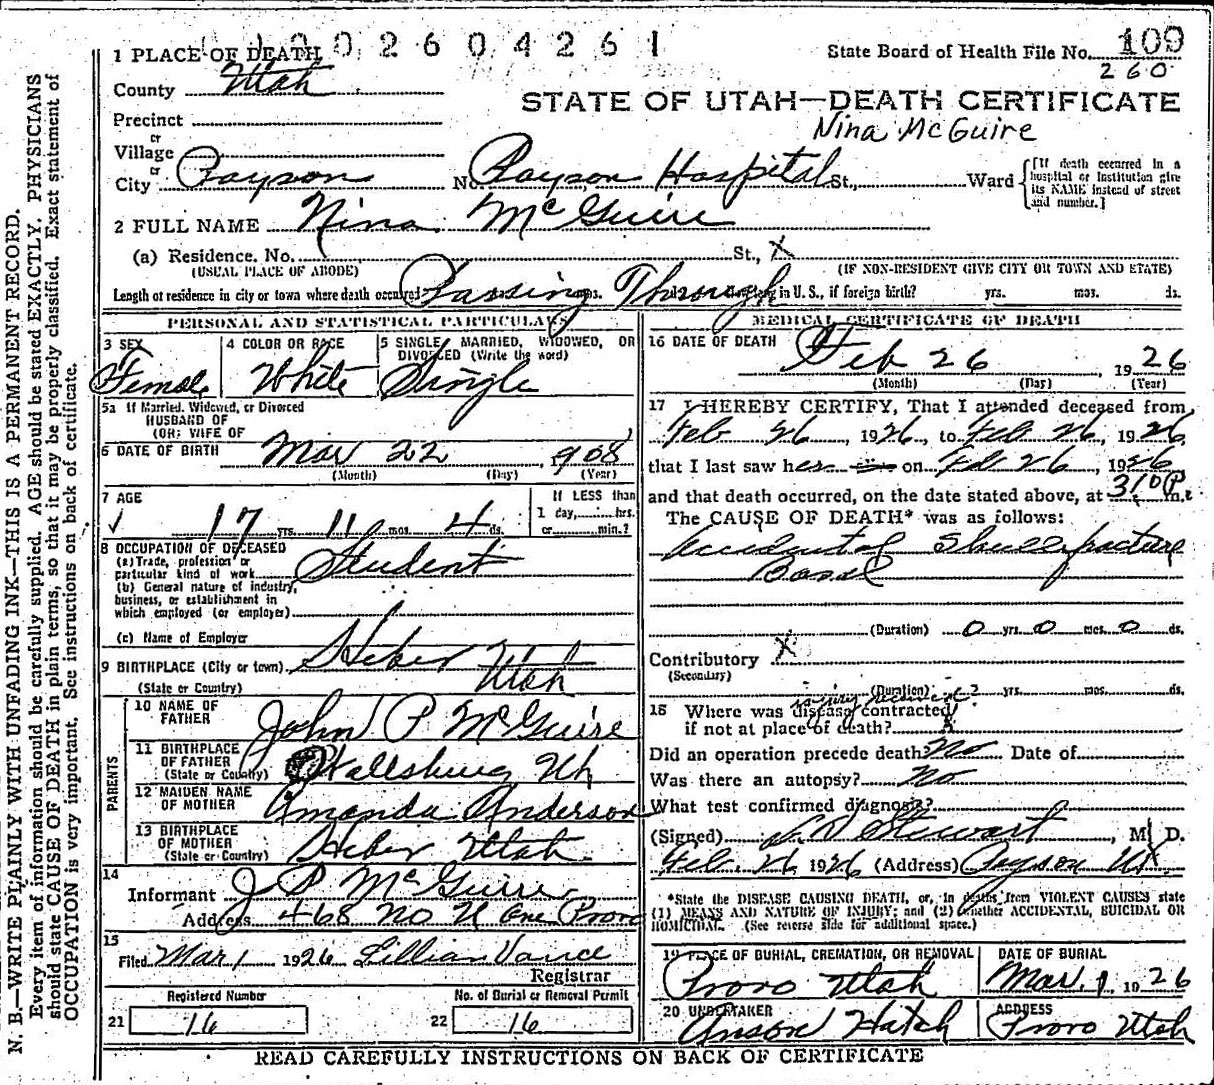 1 PLACE OF DEATH 1 1 0 0 2 6 0 4 2 6 1 State Board of Health File No. 109
260
County Utah
STATE OF UTAH—DEATH CERTIFICATE
Precinct
Nina McGuire
or
Village
or
City Payson No. Payson Hospital St., Ward [If death occurred in a hospital or institution give its NAME instead of street and number.]
2 FULL NAME Nina McGuire
(a) Residence. No. St., X
(USUAL PLACE OF ABODE) (IF NON-RESIDENT GIVE CITY OR TOWN AND STATE)
Length of residence in city or town where death occurred Passing Through in U. S., if foreign birth? yrs. mos. ds.
PERSONAL AND STATISTICAL PARTICULARS
3 SEX 4 COLOR OR RACE 5 SINGLE, MARRIED, WIDOWED, OR
DIVORCED (Write the word)
Female White Single
5a If Married, Widowed, or Divorced
HUSBAND OF
(OR) WIFE OF
6 DATE OF BIRTH Mar 22, 1908
(Month) (Day) (Year)
7 AGE If LESS than
17 yrs. 11 mos. 4 ds. 1 day, hrs.
or min.?
8 OCCUPATION OF DECEASED
(a) Trade, profession or
particular kind of work Student
(b) General nature of industry,
business, or establishment in
which employed (or employer)
(c) Name of Employer
9 BIRTHPLACE (City or town) Heber Utah
(State or Country)
PARENTS
10 NAME OF
FATHER John P McGuire
11 BIRTHPLACE
OF FATHER
(State or Country) Wallsburg Uh
12 MAIDEN NAME
OF MOTHER Amanda Anderson
13 BIRTHPLACE
OF MOTHER
(State or Country) Heber Utah.
14
Informant J P McGuire
Address 468 No U Ave Provo
15
Filed Mar 1 1926 Lillian Vance
Registrar
Registered Number No. of Burial or Removal Permit
21 16 22 16
MEDICAL CERTIFICATE OF DEATH
16 DATE OF DEATH Feb 26, 1926
(Month) (Day) (Year)
17 I HEREBY CERTIFY, That I attended deceased from
Feb 26, 1926, to Feb 26, 1926
that I last saw her on Feb 26, 1926
and that death occurred, on the date stated above, at 310 P.m.
The CAUSE OF DEATH* was as follows:
Accidental Skull fracture
Basal
(Duration) 0 yrs. 0 mos. 0 ds.
Contributory X
(Secondary)
(Duration) ? yrs. mos. ds.
injury received
18 Where was disease contracted
if not at place of death? X
Did an operation precede death? No Date of
Was there an autopsy? No
What test confirmed diagnosis?
(Signed) Stewart, M. D.
Feb. 26 1926 (Address) Payson Ut
*State the DISEASE CAUSING DEATH, or, in deaths from VIOLENT CAUSES state
(1) MEANS AND NATURE OF INJURY; and (2) whether ACCIDENTAL, SUICIDAL OR
HOMICIDAL. (See reverse side for additional space.)
19 PLACE OF BURIAL, CREMATION, OR REMOVAL DATE OF BURIAL
Provo Utah Mar. 1 1926
20 UNDERTAKER ADDRESS
Anson Hatch Provo Utah
READ CAREFULLY INSTRUCTIONS ON BACK OF CERTIFICATE
N. B.—WRITE PLAINLY WITH UNFADING INK—THIS IS A PERMANENT RECORD.
Every item of information should be carefully supplied. AGE should be stated EXACTLY. PHYSICIANS
should state CAUSE OF DEATH in plain terms, so that it may be properly classified. Exact statement of
OCCUPATION is very important. See instructions on back of certificate.